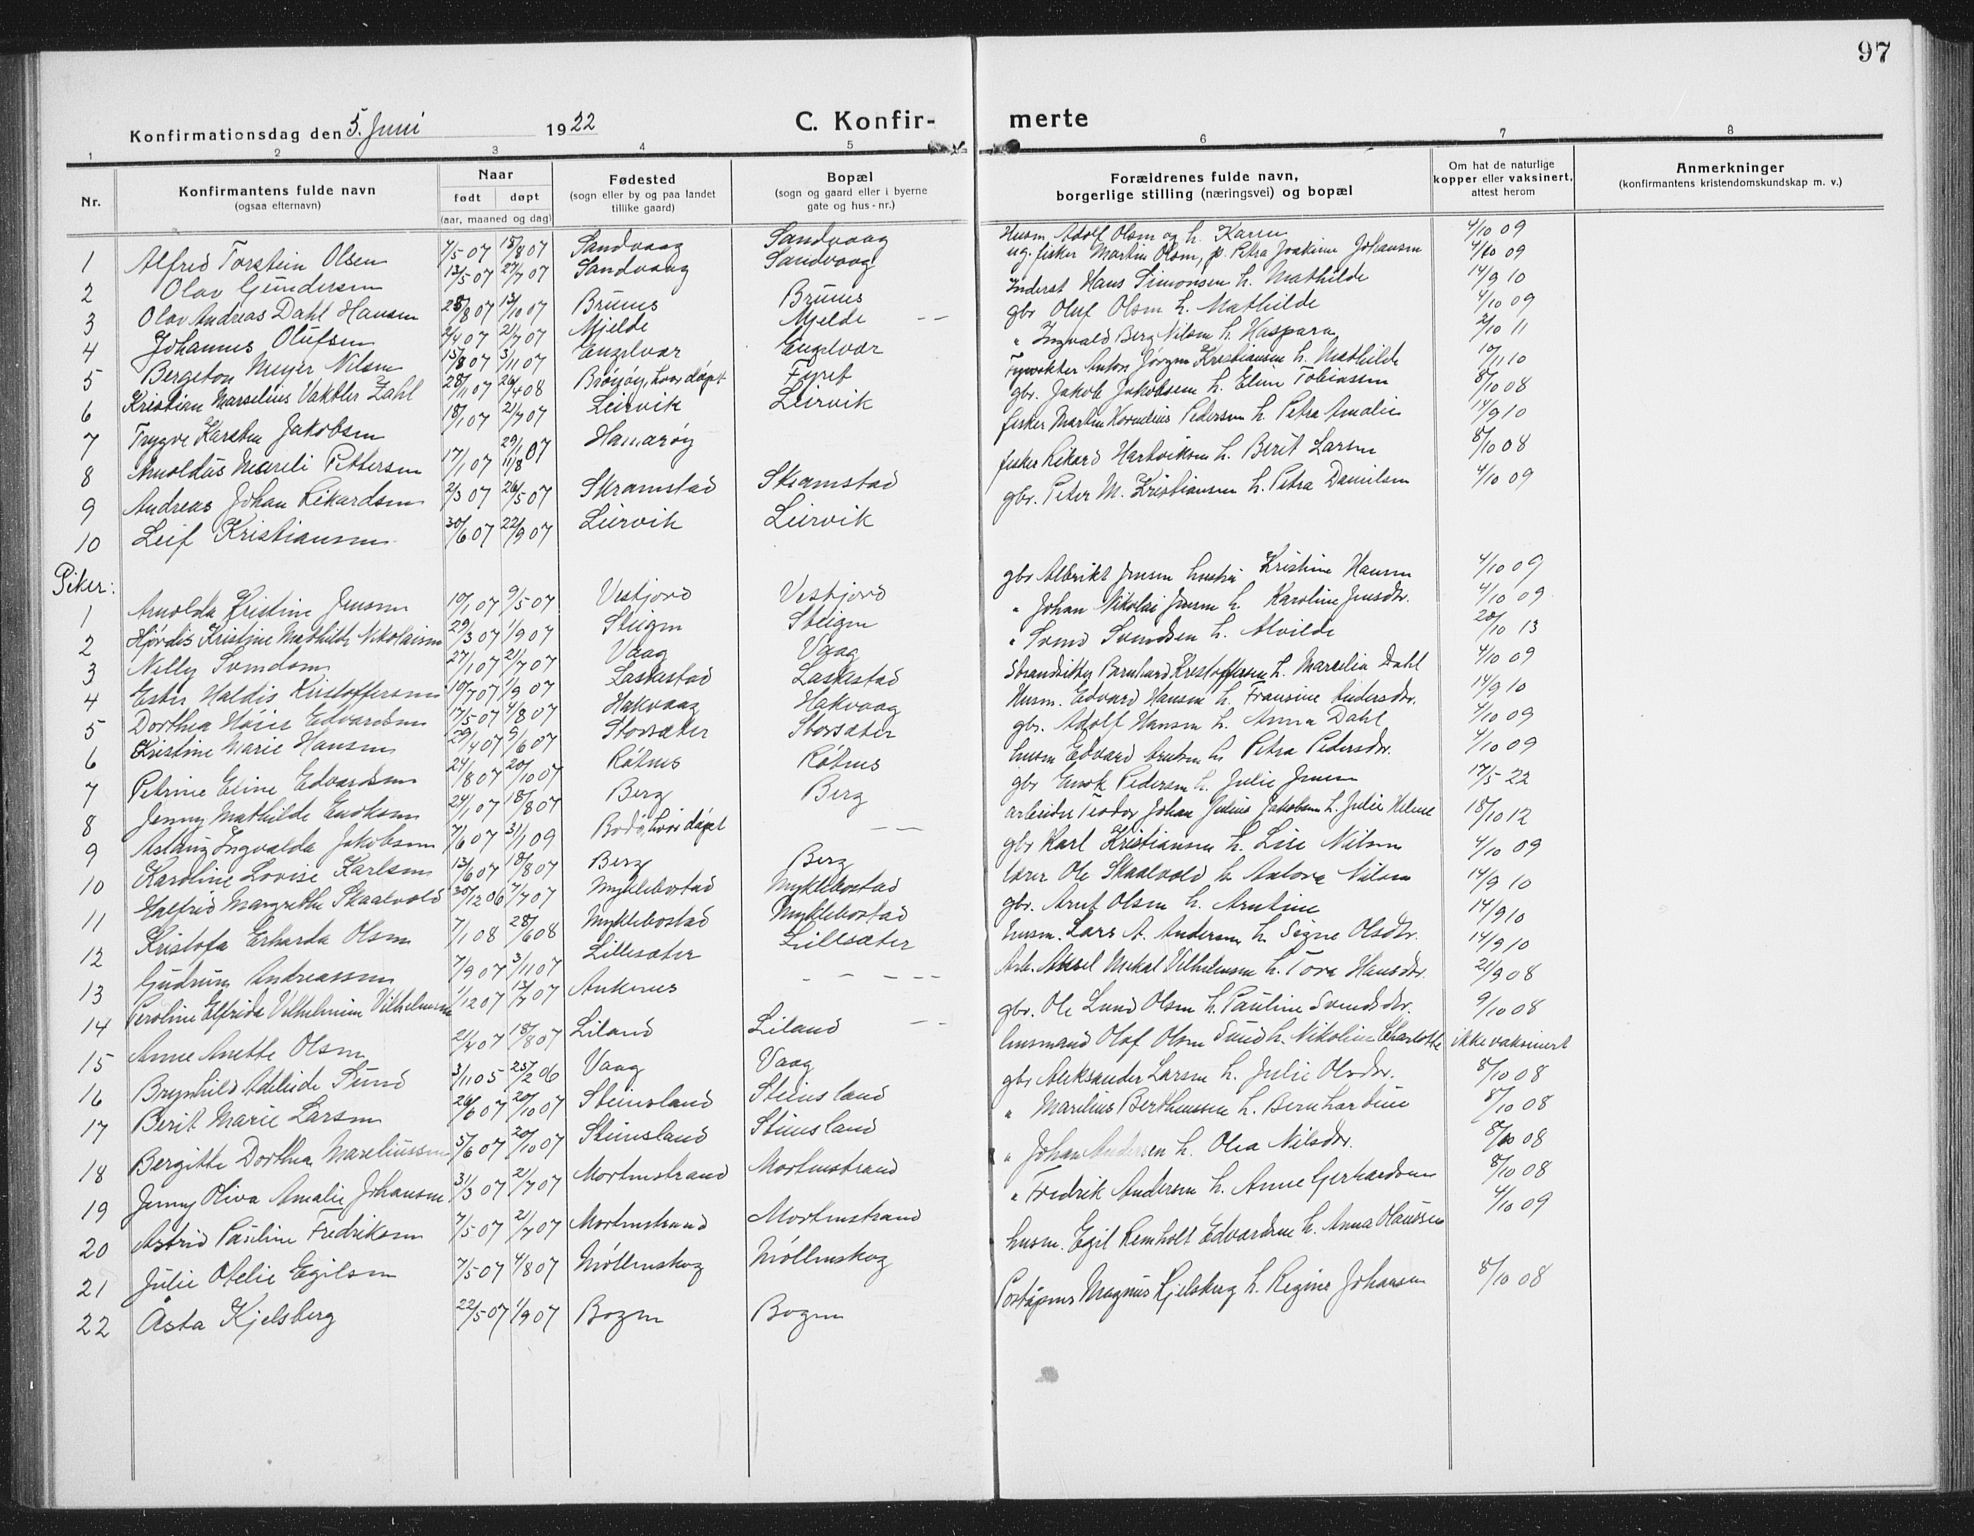 97
Konfirmationsdag den 5. Juni 1922 C. Konfir- merte
1 2 3 4 5 6 7 8
Nr. Konfirmantens fulde navn (ogsaa efternavn) Naar født døpt (aar, maaned og dag) Fødested (sogn eller by og paa landet tillike gaard) Bopæl (sogn og gaard eller i byerne gate og hus-nr.) Forældrenes fulde navn, borgerlige stilling (næringsvei) og bopæl Om hat de naturlige kopper eller vaksinert, attest herom Anmerkninger (konfirmantens kristendomskundskap m. v.)
1 Alfred Torstein Olsen 7/5 07 18/8 07 Sandvaag Sandvaag Husm. Adolf Olsen og h. Karen 4/10 09
2 Olav Gundersen 13/5 07 21/7 07 Sandvaag Sandvaag ug. fisker Martin Olsen, p. Petra Joakime Johansen 4/10 09
3 Olav Andreas Dahl Hansen 28/8 07 13/10 07 Brunes Brunes Inderst Hans Simonsen h. Mathilde 14/9 10
4 Johannes Olufsen 2/4 07 21/7 07 Mjelde Mjelde gbr Oluf Olsen h. Mathilde 4/10 09
5 Bergeton Meyer Nilsen 15/8 07 3/11 07 Engelvær Engelvær " Ingvald Berg Nilsen h. Kaspara 2/10 11
6 Kristian Marselius Vaktler Zahl 28/11 07 26/4 08 Brønøy, hvor døpt Fyret Fyrvokter Anton Jørgen Kristiansen h. Mathilde 10/11 10
7 Trygve Karsten Jakobsen 18/1 07 21/7 07 Leirvik Leirvik gbr. Jakob Jakobsen h. Eline Tobiassen 8/10 08
8 Arnoldus Mareli Pettersen 17/1 07 29/1 07 11/8 Hamarøy fisker Martin Kornelius Pedersen h. Petra Amalie 14/9 10
9 Andreas Johan Rikardsen 2/3 07 26/5 07 Skramstad Skramstad fisker Rikard Hartviksen h. Berit Larsen 8/10 08
10 Leif Kristiansen 30/6 07 22/9 07 Leirvik Leirvik gbr. Peter M. Kristiansen h. Petra Danielsen 4/10 09
Piker:
1 Arnolda Kristine Jensen 19/1 07 9/5 07 Vestfjord Vestfjord gbr Albrikt Jensen hustru Kristine Hansen 4/10 09
2 Hjørdis Kristine Mathilde Nikolaisen 29/3 07 1/9 07 Steigen Steigen " Johan Nikolai Jensen h. Karoline Jensdtr. 4/10 09
3 Nelly Svendsen 27/1 07 21/7 07 Vaag Vaag " Svend Svendsen h. Alvilde 20/10 13
4 Ester Haldis Kristoffersen 19/7 07 1/9 07 Laskestad Laskestad Strandsitter Bernhard Kristoffersen h. Marselia Dahl 4/10 09
5 Dorthea Høier Edvardsen 17/5 07 4/8 07 Hakvaag Hakvaag Husm. Edvard Hansen h. Fransine Andersdtr. 14/9 10
6 Kristine Marie Hansen 29/4 07 9/6 07 Storsæter Storsæter gbr. Adolf Hansen h. Anna Dahl 4/10 09
7 Petrine Eline Edvardsen 24/8 07 20/10 07 Røtnes Røtnes husm Edvard Arntsen h. Petra Pedersdtr. 4/10 09
8 Jenny Mathilde Enoksen 24/1 07 18/8 07 Berg Berg gbr Enok Pedersen h. Julie Jensen 17/5 22
9 Aslaug Ingvalda Jakobsen 7/6 07 31/1 09 Bodø, hvor døpt — — arbeider Teodor Johan Julius Jakobsen h. Julie Helene 18/10 12
10 Karoline Lovise Karlsen 13/6 07 18/8 07 Berg Berg gbr Karl Kristiansen h. Lise Nilsen 4/10 09
11 Halfrid Margrethe Skaalvold 30/12 06 7/7 07 Myklebostad Myklebostad lærer Ole Skaalvold h. Antora Nilsen 14/9 10
12 Kristofa Erharda Olsen 7/1 08 28/6 08 Myklebostad Myklebostad gbr. Arnt Olsen h. Arntine 14/9 10
13 Gudrun Andreassen 7/9 07 3/11 07 Lillesæter Lillesæter husm. Lars A. Andersen h. Signe Olsdtr. 14/9 10
14 Peroline Elfrida Vilhelmine Vilhelmsen 1/12 07 13/7 07 Ankenes — — — — Arb. Aksel Mekal Vilhelmsen h. Tora Hansdtr. 21/9 08
15 Anne Anette Olsen 2/4 07 18/8 07 Liland Liland gbr. Ole Lund Olsen h. Pauline Svendsdtr. 9/10 08
16 Brynhild Adeleide Sund 3/11 05 25/2 06 Vaag Vaag husmand Olaf Olsen Sund h. Nikoline Charlotte ikke vaksinert
17 Berit Marie Larsen 26/6 07 20/10 07 Steinsland Steinsland gbr Aleksander Larsen h. Julie Olsdtr. 8/10 08
18 Bergitte Dorthea Mareliussen 5/6 07 20/10 07 Steinsland Steinsland " Marelius Bertheussen h. Bernhardine 8/10 08
19 Jenny Oliva Amalie Johansen 31/3 07 21/7 07 Mortenstrand Mortenstrand " Johan Andersen h. Olea Nilsdtr. 8/10 08
20 Astrid Pauline Fredriksen 7/5 07 21/7 07 Mortenstrand Mortenstrand " Fredrik Andersen h. Anne Gerhardsen 8/10 08
21 Julie Otelie Egilsen 7/5 07 4/8 07 Møllenskog Møllenskog husm. Egil Remholt Edvardsen h. Anna Olaussen 4/10 09
22 Asta Kjelsberg 22/5 07 1/9 07 Bogen Bogen Poståpner Magnus Kjelsberg h. Regine Johansen 8/10 08